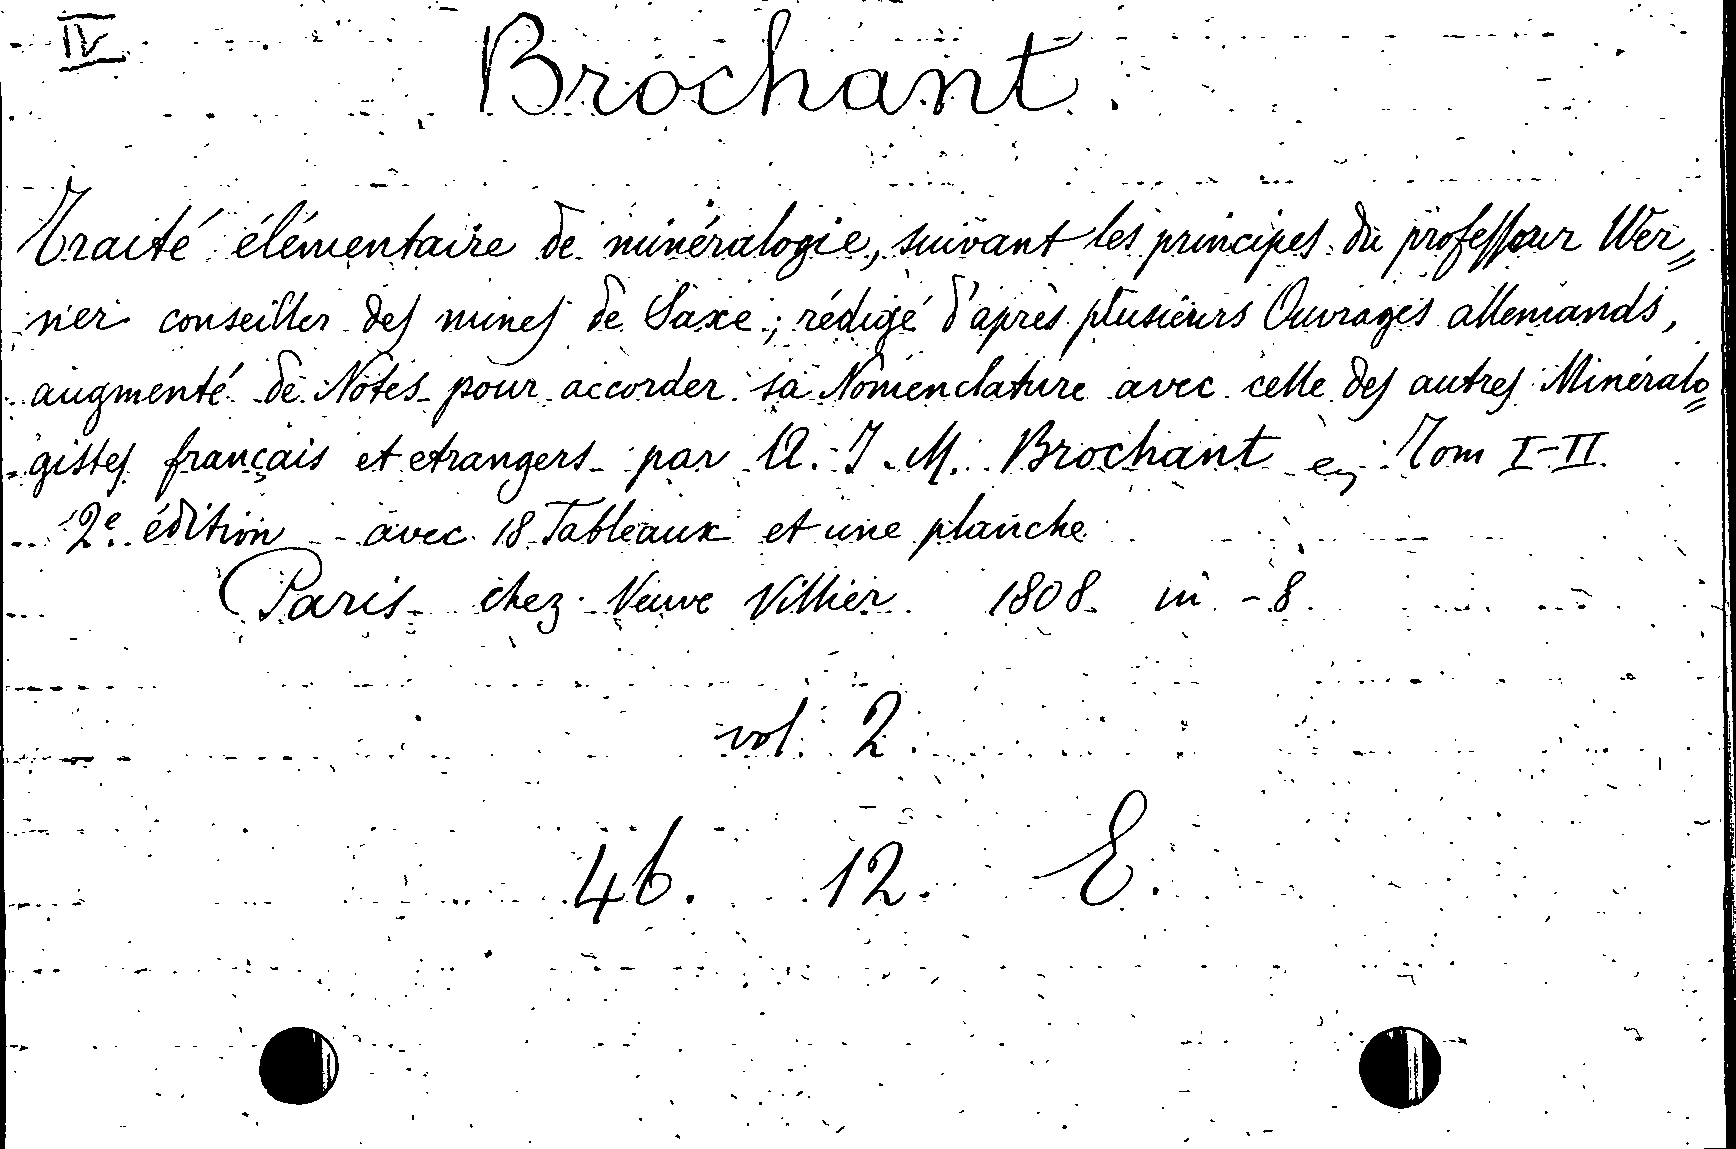 IV
Brochant.
Traité élémentaire de minéralogie, suivant les principes du professeur Wer=
ner conseiller des mines de Saxe; rédigé d'après plusieurs Ouvrages allemands,
augmenté de Notes pour accorder sa Nomenclature avec celle des autres Minéralo=
gistes français et etrangers par A. J. M. Brochant Tom I-II.
2e. édition avec 18 Tableaux et une planche
Paris chez Veuve Villier. 1808. in -8.
vol. 2.
46. 12. E.